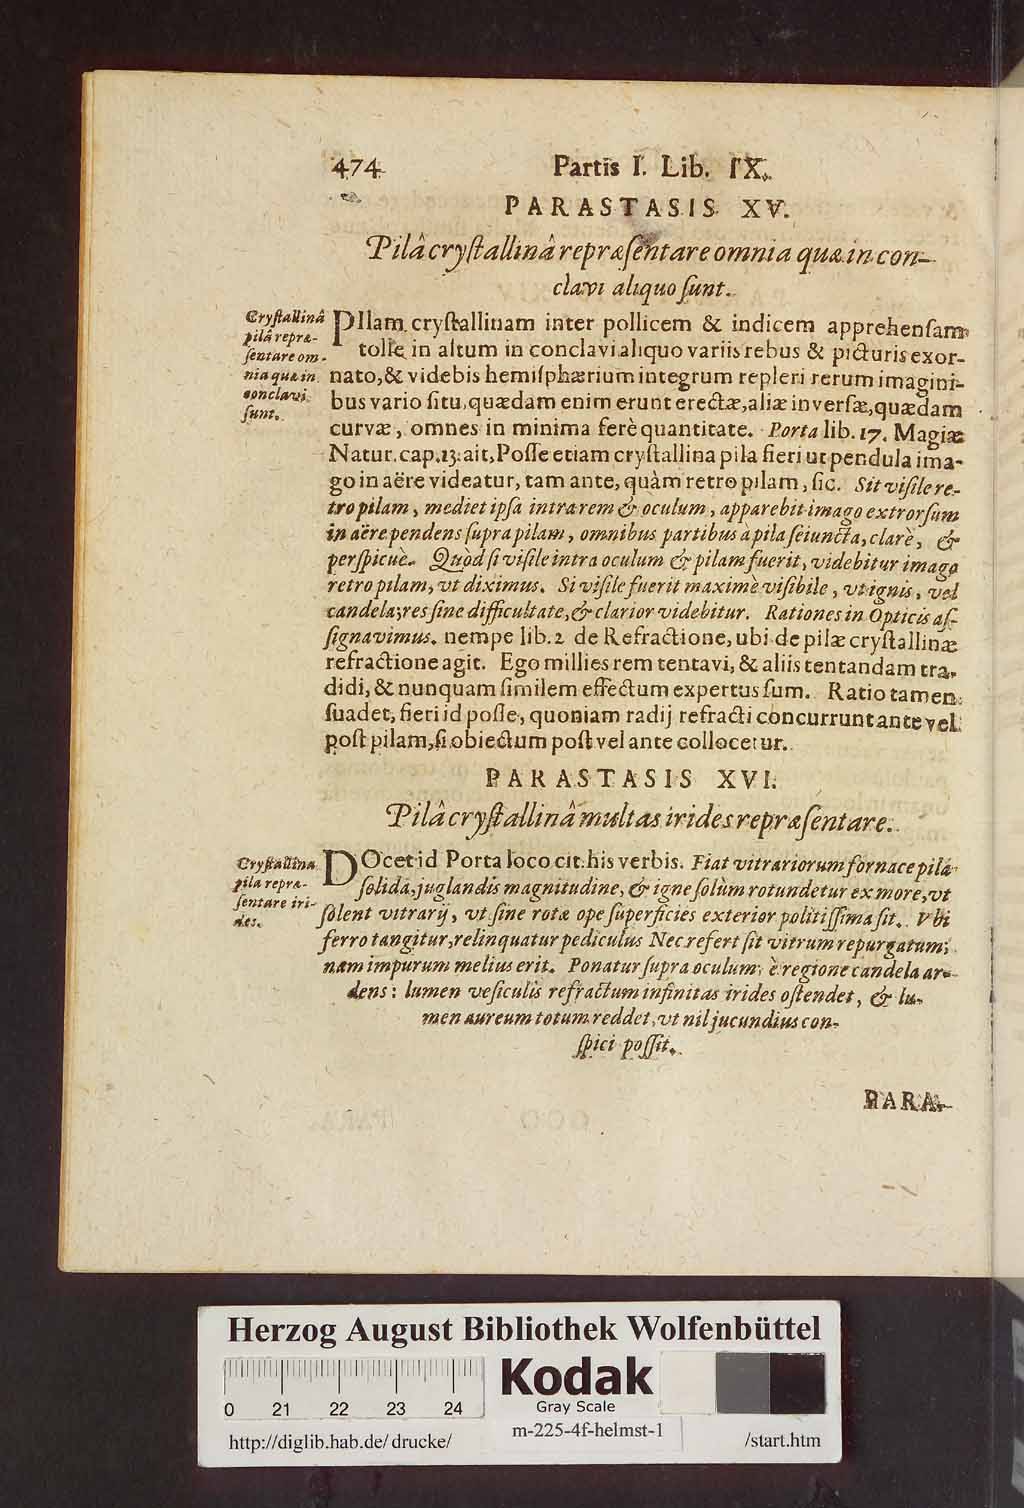 474 Partis I. Lib. IX.
PARASTASIS XV.
Pilâ cryſtallinâ repræſentare omnia quæ in con-
clavi aliquo ſunt.
Cryſtallinâ
pilâ repræ-
ſentare om-
nia quæ in
conclavi
ſunt.
PIlam cryſtallinam inter pollicem & indicem apprehenſam
tolle in altum in conclavi aliquo variis rebus & picturis exor-
nato, & videbis hemiſphærium integrum repleri rerum imagini-
bus vario ſitu, quædam enim erunt erectæ, aliæ inverſæ, quædam
curvæ, omnes in minima ferè quantitate. Porta lib. 17. Magiæ
Natur. cap. 13. ait, Poſſe etiam cryſtallina pila fieri ut pendula ima-
go in aëre videatur, tam ante, quàm retro pilam, ſic. Sit viſile re-
tro pilam, mediet ipſa intra rem & oculum, apparebit imago extrorſum
in aëre pendens ſupra pilam, omnibus partibus à pila ſeiuncta, clarè, &
perſpicuè. Quòd ſi viſile intra oculum & pilam fuerit, videbitur imago
retro pilam, vt diximus. Si viſile fuerit maximè viſibile, vt ignis, vel
candela; res ſine difficultate, & clarior videbitur. Rationes in Opticis aſ-
ſignavimus. nempe lib. 2 de Refractione, ubi de pilæ cryſtallinæ
refractione agit. Ego millies rem tentavi, & aliis tentandam tra-
didi, & nunquam ſimilem effectum expertus ſum. Ratio tamen
ſuadet, fieri id poſſe, quoniam radij refracti concurrunt ante vel
poſt pilam, ſi obiectum poſt vel ante collocetur.
PARASTASIS XVI.
Pilâ cryſtallinâ multas irides repræſentare.
Cryſtallina
pila repræ-
ſentare iri-
des.
DOcet id Porta loco cit. his verbis. Fiat vitrariorum fornace pila
ſolida, juglandis magnitudine, & igne ſolùm rotundetur ex more, vt
ſolent vitrarij, vt ſine rotæ ope ſuperficies exterior politiſſima ſit. Vbi
ferro tangitur, relinquatur pediculus Nec refert ſit vitrum repurgatum;
nam impurum melius erit. Ponatur ſupra oculum, è regione candela ar-
dens: lumen veſiculis refractum infinitas irides oſtendet, & lu-
men aureum totum reddet, vt nil jucundius con-
ſpici poſſit.
PARA-
Herzog August Bibliothek Wolfenbüttel
0 21 22 23 24
Kodak
Gray Scale
http://diglib.hab.de/drucke/ m-225-4f-helmst-1 /start.htm